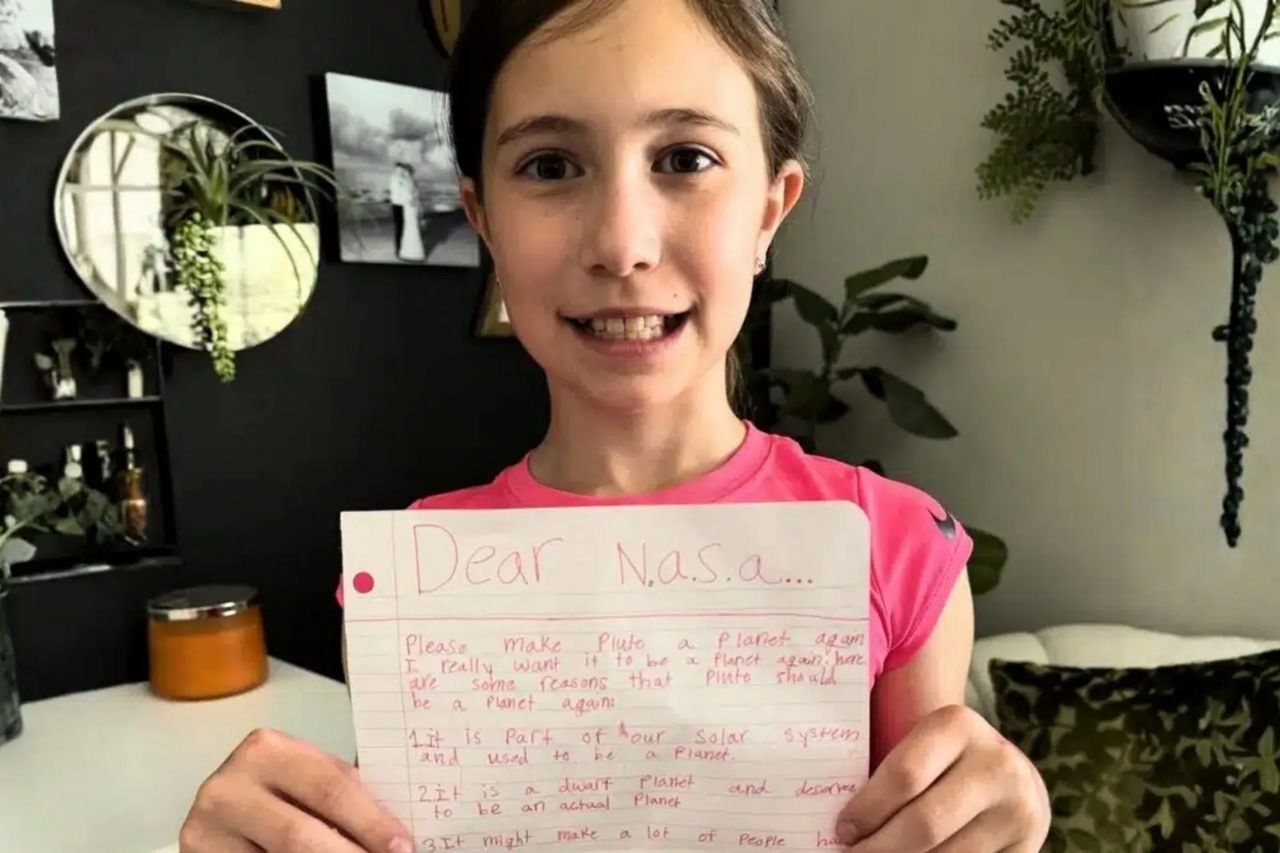 Dear N.a.S.a...
Please make Pluto a Planet again
I really want it to be a Planet again. here
are some reasons that Pluto should
be a Planet again:
1.it is part of our solar system
and used to be a Planet.
2.it is a dwarf Planet and deserve
to be an actual Planet
3.It might make a lot of People ha